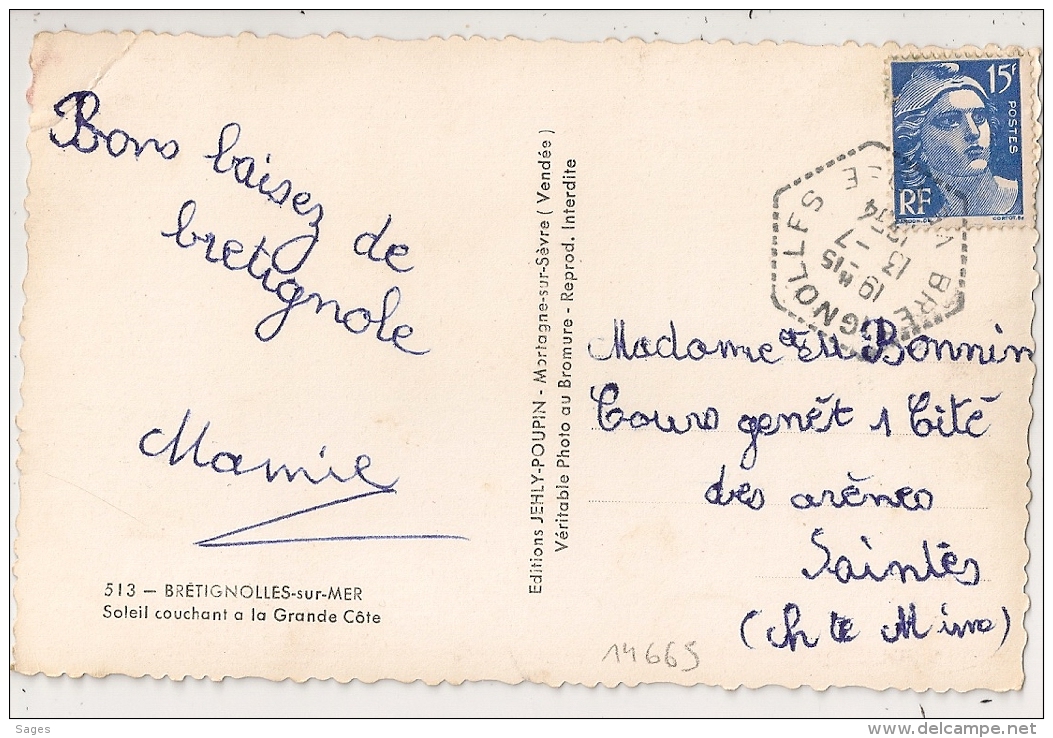 Bons baisez de
bretignole
Mamie
513 — BRÉTIGNOLLES-sur-MER
Soleil couchant a la Grande Côte
Editions JEHLY-POUPIN - Mortagne-sur-Sèvre (Vendée)
Véritable Photo au Bromure - Reprod. Interdite
15F
POSTES
RF
19H15
13-7
Madame et Bonnin
Cours genêt 1 Cité
des arènes
Saintès
(Ch te Mme)
14665
Sages
www.delcampe.net